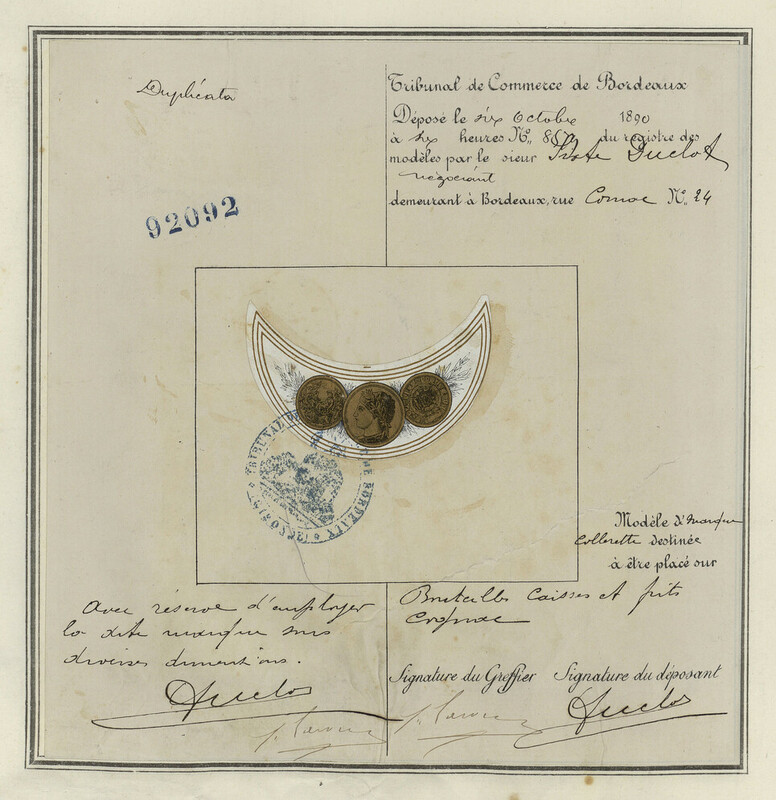 Duplicata
92092
Tribunal de Commerce de Bordeaux
Déposé le six Octobre 1890
à six heures N° du registre des
modèles par le sieur Duclot
négociant
demeurant à Bordeaux, rue N° 24
TRIBUNAL DE BORDEAUX
Modèle d marque
Collerette destinée
à être placé sur
Bouteilles Caisses et futs
Cognac
avec réserve d'employer
la dite marque sous
diverses dimentions.
Signature du Greffier Signature du déposant
Duclot
Duclot